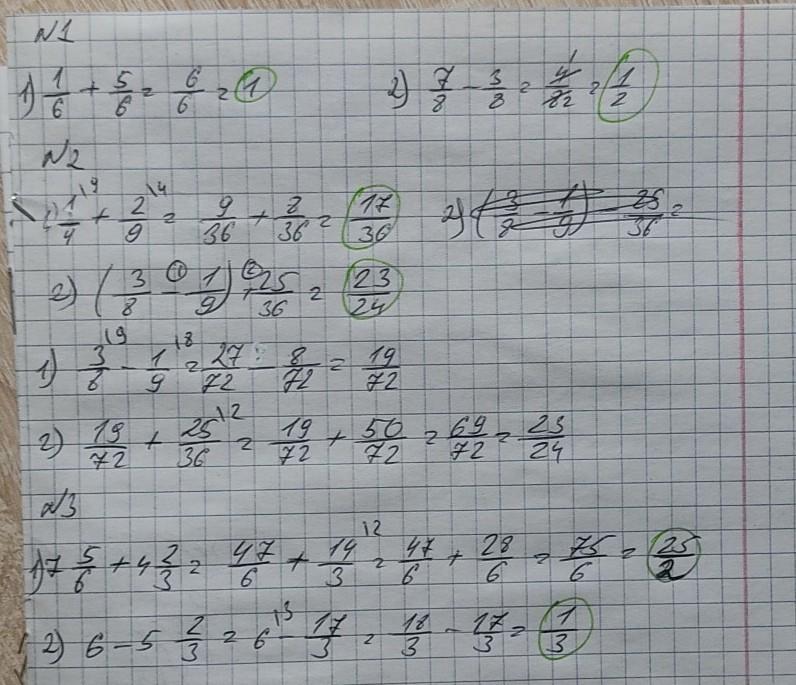 №1
1) 1/6 + 5/6 = 6/6 = 1    2) 7/8 - 3/8 = 4/82 = 1/2
№2
1) 1\9/4 + 2\4/9 = 9/36 + 8/36 = 17/36    2) (3/8 - 1/9) - 25/36 =
2) (3/8 -① 1/9) +② 25/36 = 23/24
1) 3\9/8 - 1\8/9 = 27/72 - 8/72 = 19/72
2) 19/72 + 25\2/36 = 19/72 + 50/72 = 69/72 = 23/24
№3
1) 7 5/6 + 4 2/3 = 47/6 + 14\2/3 = 47/6 + 28/6 = 75/6 = 25/2
2) 6 - 5 2/3 = 6\3 - 17/3 = 18/3 - 17/3 = 1/3